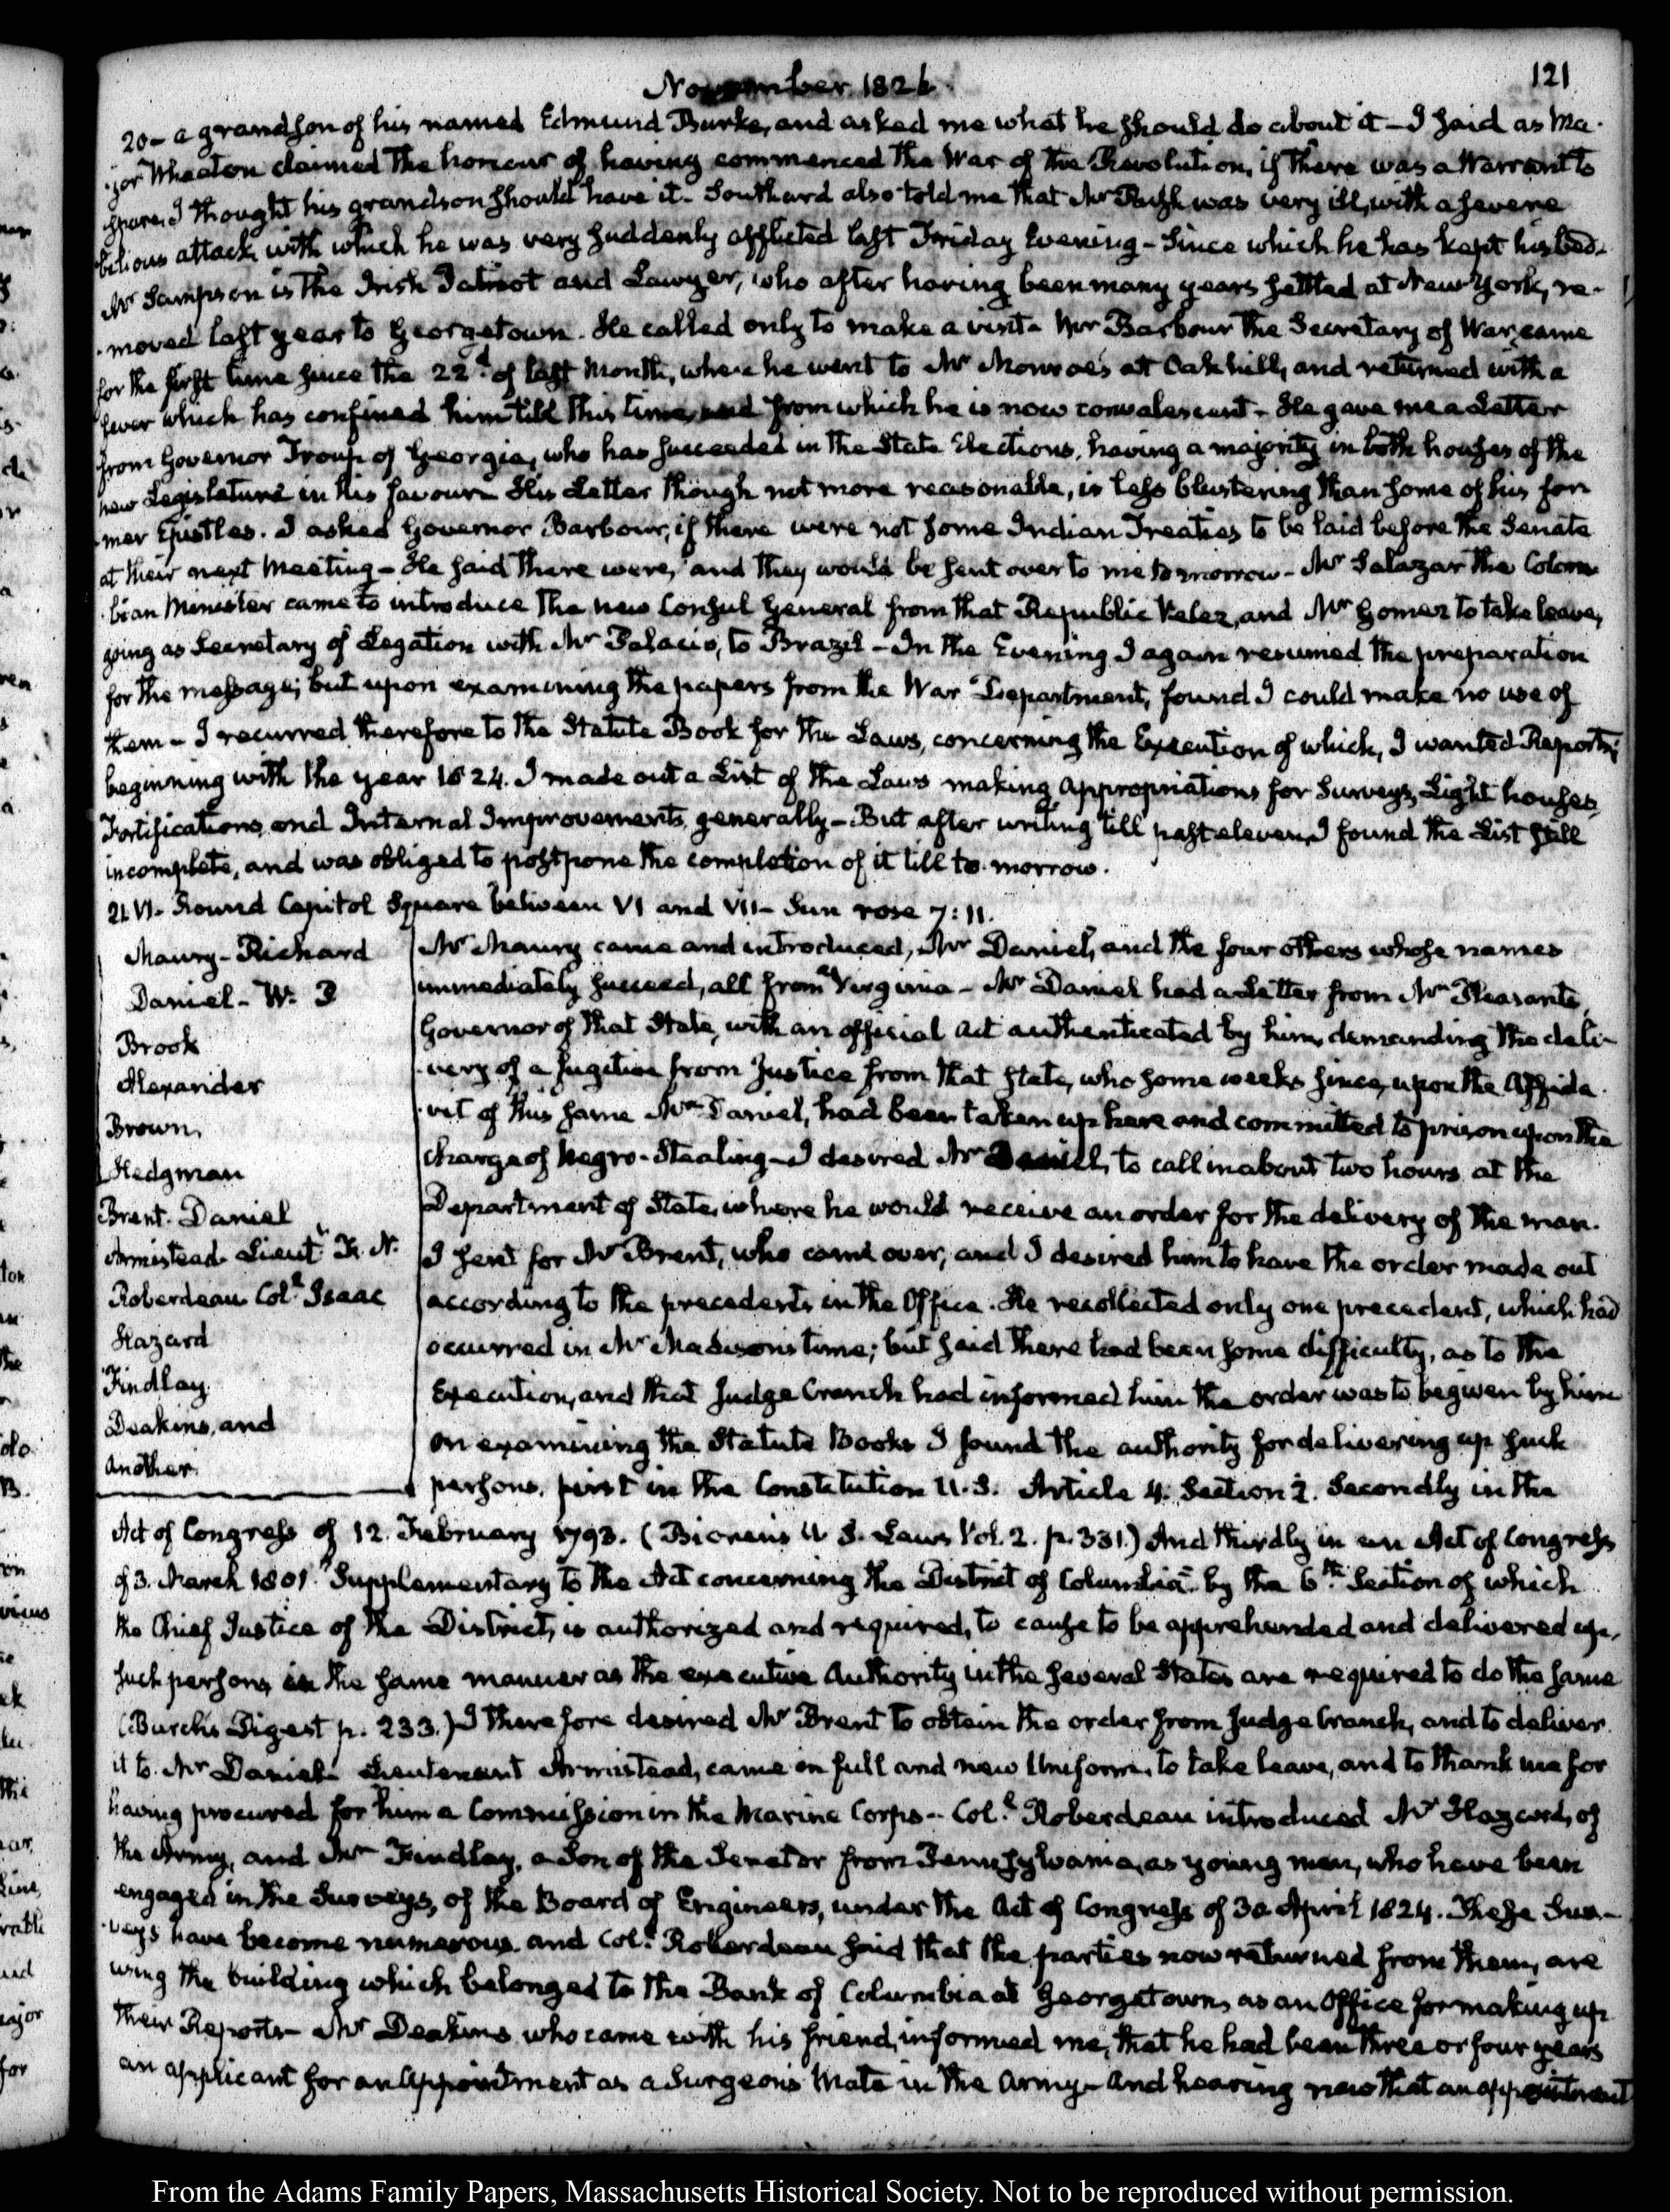 November 1826.
121
20– a grandson of his named Edmund Burke, and asked me what he should do about it – I said as Ma-
-jor Wheaton claimed the honour of having commenced the War of the Revolution, if there was a Warrant to
spare, I thought his grandson should have it – Southard also told me that Mr Rush was very ill, with a severe
bilious attack with which he was very suddenly afflicted last Friday Evening – Since which he has kept his bed.
Mr Sampson is the Irish Patriot and Lawyer, who after having been many years settled at New York, re-
-moved last year to Georgetown. He called only to make a visit – Mr Barbour the Secretary of War, came
for the first time since the 22.d of last Month, when he went to Mr Monroe's at Oakhill, and returned with a
fever which has confined him till this time, and from which he is now convalescent – He gave me a Letter
from Governor Troup of Georgia, who has succeeded in the State Elections, having a majority in both houses of the
new Legislature in his favour – His Letter though not more reasonable, is less blustering than some of his for-
-mer Epistles. I asked Governor Barbour, if there were not some Indian Treaties to be laid before the Senate
at their next Meeting – He said there were, and they would be sent over to me tomorrow – Mr Salazar the Colom-
-bian Minister came to introduce the new Consul General from that Republic Velez, and Mr Gomez to take leave,
going as Secretary of Legation with Mr Palacio, to Brazil – In the Evening I again resumed the preparation
for the message; but upon examining the papers from the War Department, found I could make no use of
them – I recurred therefore to the Statute Book for the Laws, concerning the Execution of which, I wanted Reports;
beginning with the year 1824. I made out a List of the Laws making appropriations for Surveys, Light houses,
Fortifications, and Internal Improvements generally – But after writing till past eleven, I found the List still
incomplete, and was obliged to postpone the completion of it till to-morrow.
21. VI. Round Capitol Square between VI and VII – Sun rose 7:11.
Maury – Richard
Daniel – W.
Brook
Alexander
Brown,
Hedgman
Brent – Daniel
Armistead Lieut.t
Roberdeau Col.l Isaac
Hazard
Findlay
Deakins, and
another.
Mr Maury came and introduced, Mr Daniel, and the four others whose names
immediately succeed, all from Virginia – Mr Daniel had a Letter from Mr Pleasants
Governor of that State, with an official act authenticated by him, demanding the deli-
-very of a fugitive from Justice from that State, who some weeks since, upon the Affida-
-vit of this same Mr Daniel, had been taken up here and committed to prison upon the
charge of Negro-Stealing – I desired Mr Daniel, to call in about two hours at the
Department of State, where he would receive an order for the delivery of the man.
I sent for Mr Brent, who came over, and I desired him to have the order made out
according to the precedents in the Office. He recollected only one precedent, which had
occurred in Mr Madison's time; but said there had been some difficulty, as to the
Execution, and that Judge Cranch had informed him the order was to be given by him
on examining the Statute Books I found the authority for delivering up such
persons, first in the Constitution U.S. Article 4. Section 2. Secondly in the
Act of Congress of 12. February 1793. (Bioren's U S. Laws Vol. 2. p. 331.) And thirdly in an Act of Congress
of 3. March 1801. "Supplementary to the Act concerning the District of Columbia" by the 6th Section of which
the Chief Justice of the District, is authorized and required, to cause to be apprehended and delivered up,
such persons in the same manner as the executive Authority in the several States are required to do the same
(Burch's Digest p. 233.) I therefore desired Mr Brent to obtain the order from Judge Cranch, and to deliver
it to Mr Daniel – Lieutenant Armistead, came in full and new Uniform, to take leave, and to thank me for
having procured for him a Commission in the Marine Corps – Col.l Roberdeau introduced Mr Hazard, of
the Army, and Mr Findlay, a Son of the Senator from Pennsylvania, as young men, who have been
engaged in the Surveys, of the Board of Engineers, under the Act of Congress of 30 April 1824. These Sur-
-veys have become numerous and Col.l Roberdeau said that the parties now returned from them, are
using the building which belonged to the Bank of Columbia at Georgetown, as an Office for making up
their Reports – Mr Deakins who came with his friend, informed me, that he had been three or four years
an applicant for an Appointment as a Surgeon's Mate in the Army – And hearing now that an appointment
From the Adams Family Papers, Massachusetts Historical Society. Not to be reproduced without permission.